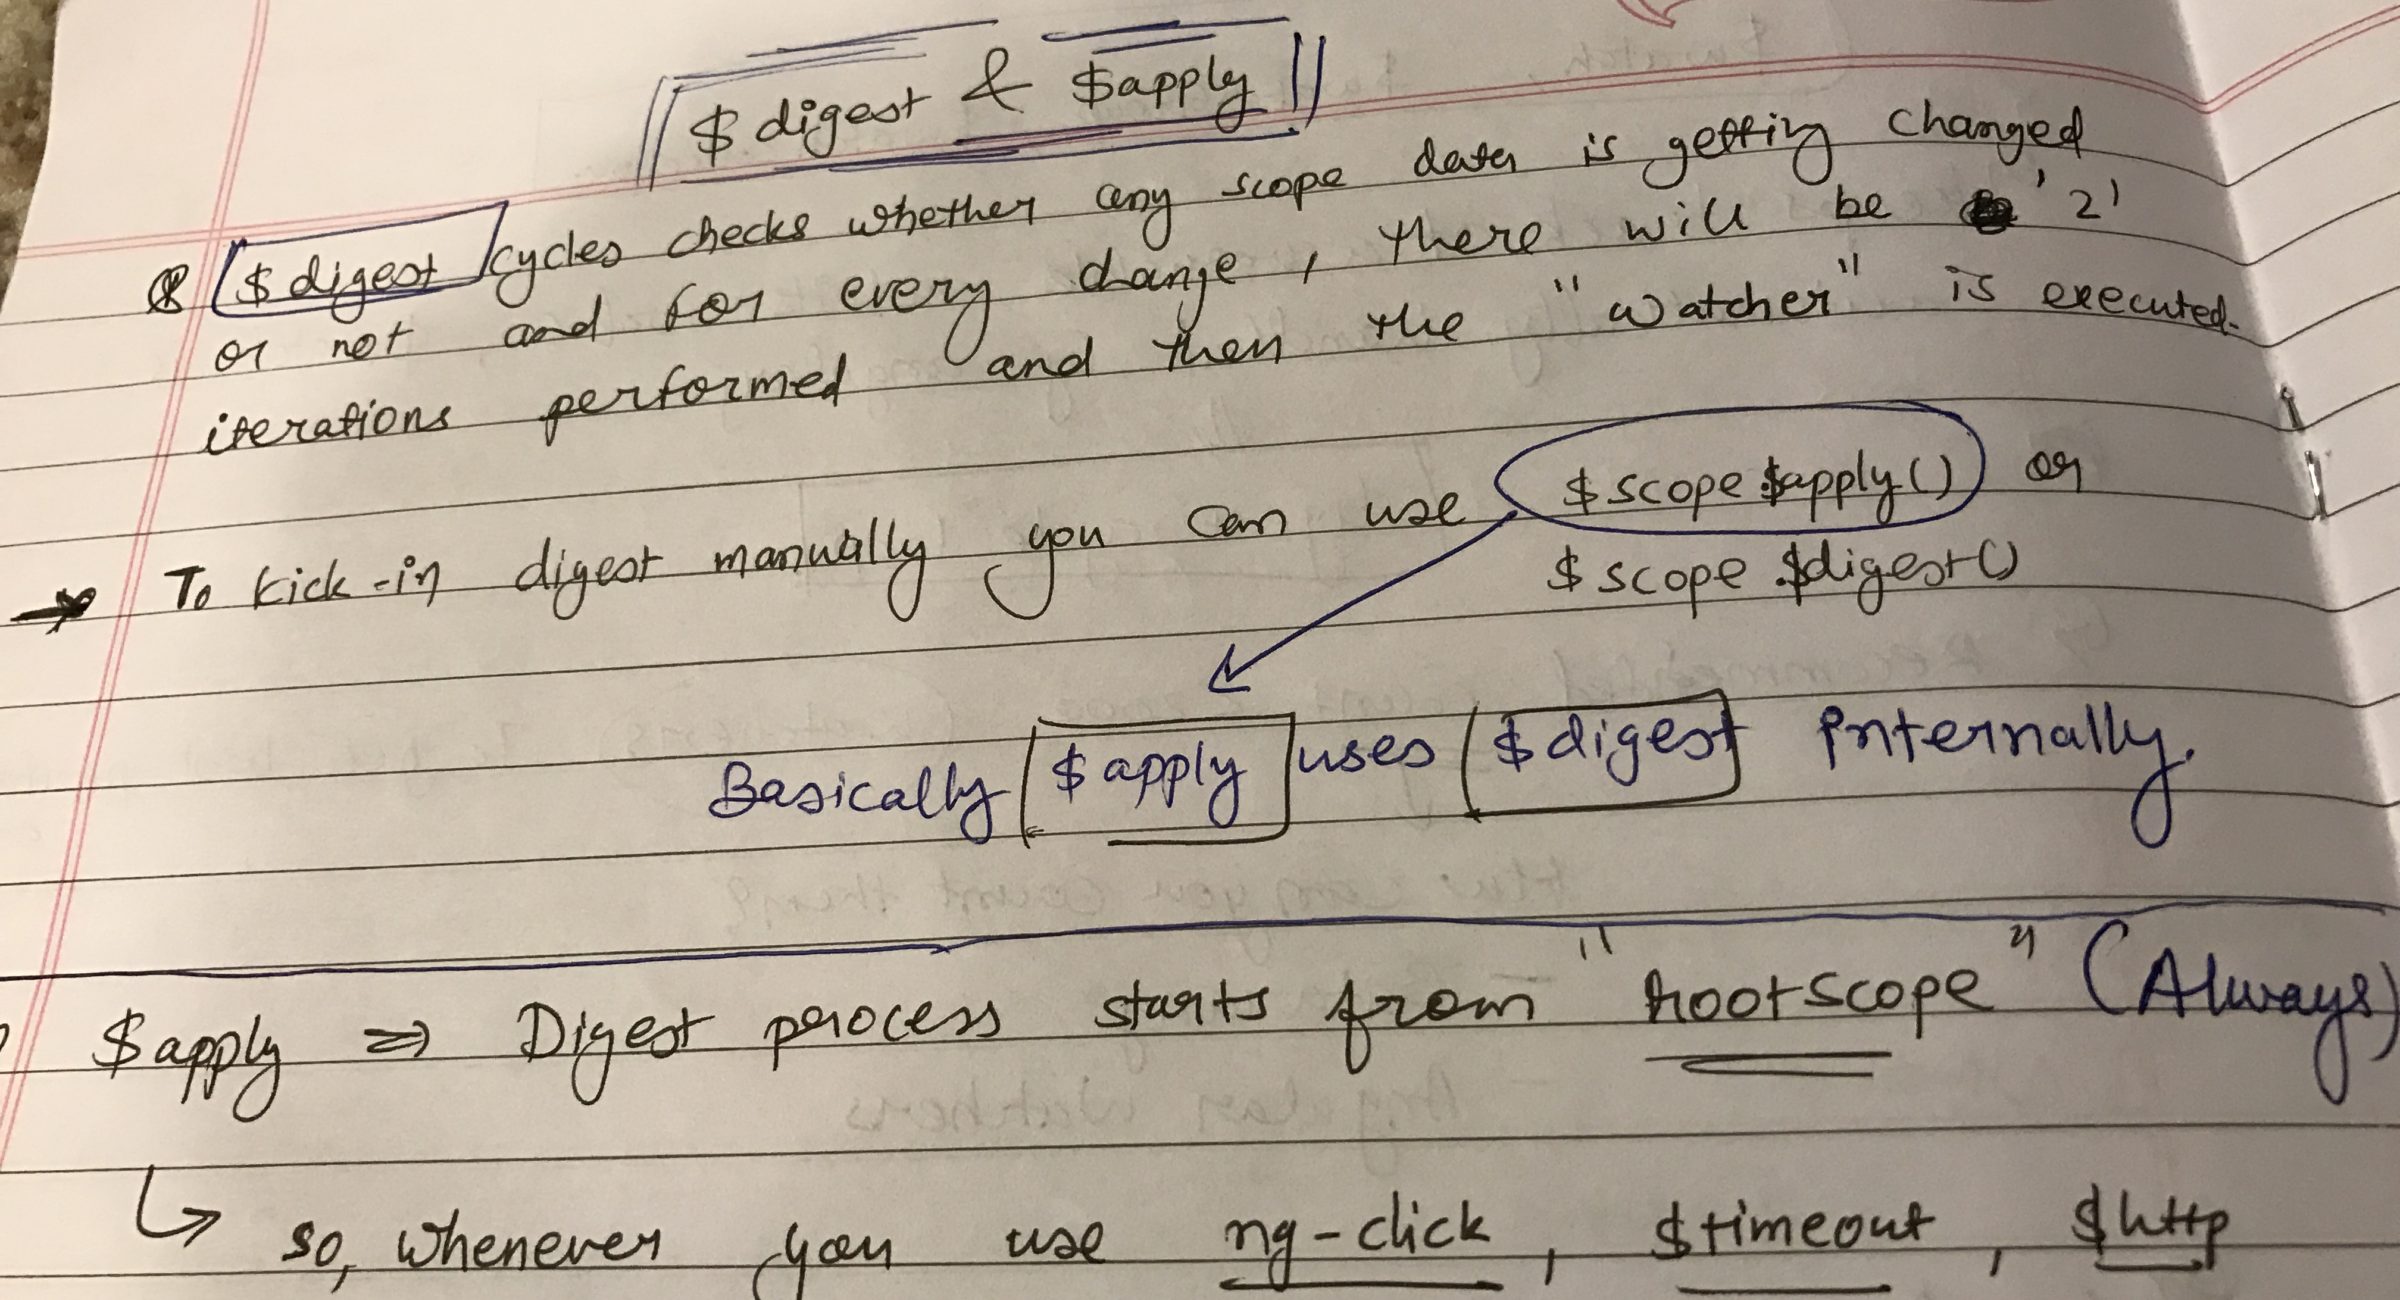 $digest & $apply
$digest cycles checks whether any scope data is getting changed
or not and for every change, there will be '2'
iterations performed and then the "watcher" is executed.
→ To kick-in digest manually you can use $scope.$apply() or
$scope.$digest()
Basically $apply uses $digest internally.
$apply ⇒ Digest process starts from "rootscope" (Always)
↳ so, whenever you use ng-click, $timeout, $http